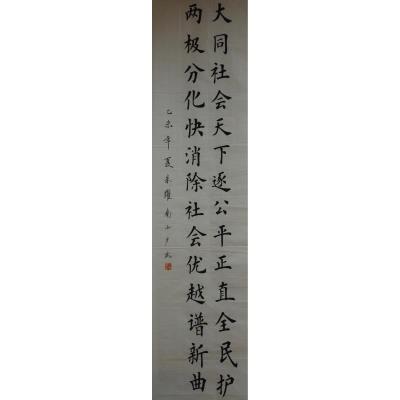 大同社会天下逐公平正直全民护
两极分化快消除社会优越谱新曲
乙未年夏